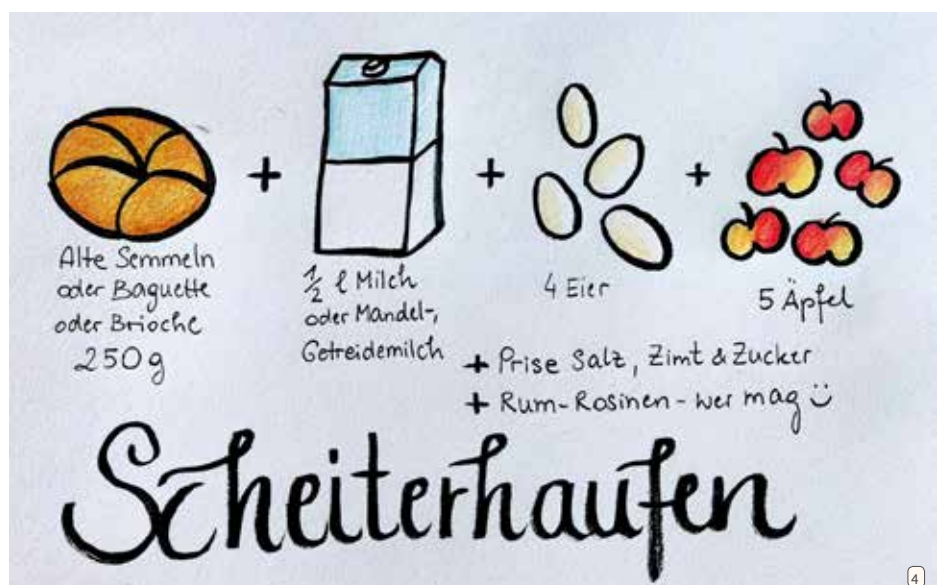 +
+
+
Alte Semmeln
oder Baguette
oder Brioche
250g
½ l Milch
oder Mandel-,
Getreidemilch
4 Eier
5 Äpfel
+ Prise Salz, Zimt & Zucker
+ Rum-Rosinen - wer mag ☺
Scheiterhaufen
4